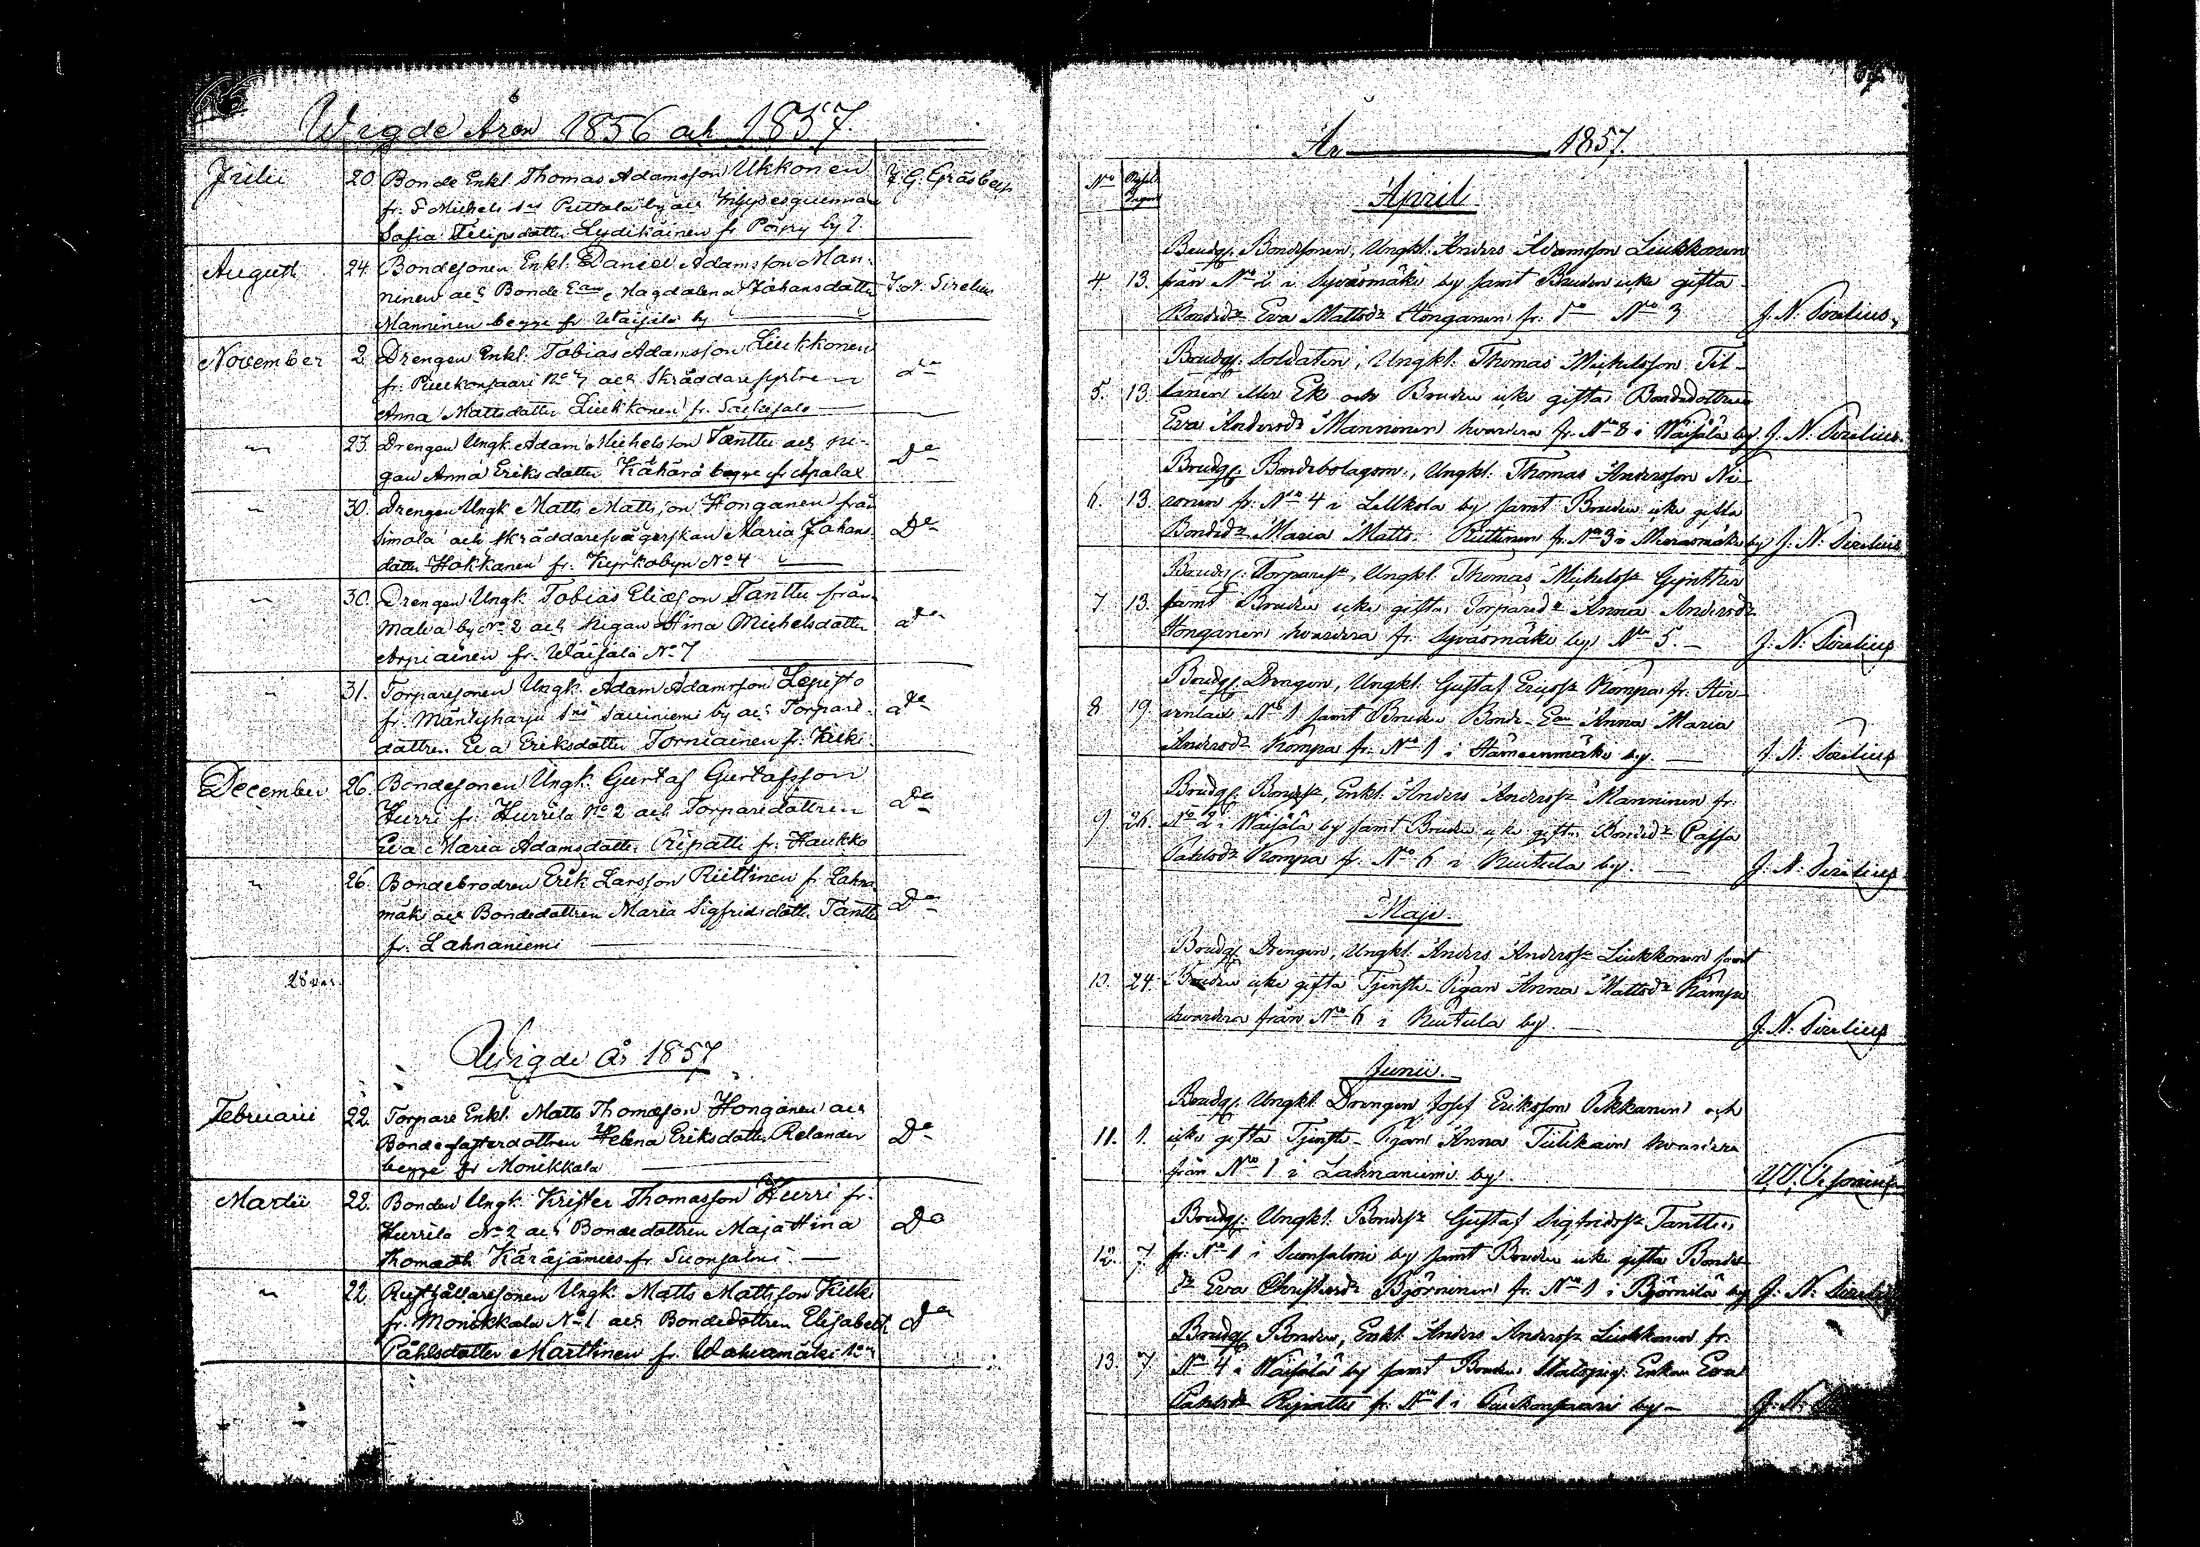 Wigde Åren 1856 och 1857.
Julii 20 Bonde Enkl. Thomas Adamsson Ukkonen
fr. S:t Michels Sn Pettola by och
Sofia Filipsdotter Lydikäinen fr. Pöyry by
Augusti 24 Bondesonen Enkl. Daniel Adamsson Man-
ninen och Bonde Enkan Magdalena Johansdotter J. N. Sirelius
Manninen begge fr. Waisala by
November 2. Drengen Enkl. Tobias Adamsson Liukkonen
fr. Puukonsaari No 7 och Skräddaresystren Do
Anna Mattsdotter Liukkonen fr.
" 23. Drengen Ungk. Adam Michelsson Tanttu och pi-
gan Anna Eriksdotter Kähärä begge fr. Do
" 30. Drengen Ungk. Matts Mattsson Honganen från
Simola och skräddaresvägerskan Maria Johans- Do
dotter Hokkanen fr. Kyrkobyn No 4
" 30. Drengen Ungk. Tobias Eliasson Tanttu från
by No 2 och Pigan Stina Michelsdotter Do
Arpiainen fr. Waisala No 7
" 31. Torparesonen Ungk. Adam Adamsson Lepistö
fr. Mäntyharju Sns by och Torpare- Do
dottren Eva Eriksdotter Torniainen fr.
December 26. Bondesonen Ungk. Gustaf Gustafsson
Hurri fr. Hurrila No 2 och Torparedottren Do
Eva Maria Adamsdotter Ripatti fr.
" 26. Bondebrodren Erik Larsson Riittinen fr. Lahna-
mäki och Bondedottren Maria Sigfridsdott. Tanttu Do
fr. Lahnaniemi
28
Wigde år 1857
Februarii 22. Torpare Enkl. Matts Thomasson Honganen och
Helena Eriksdotter Relander Do
begge fr. Monikkala
Martii 22. Bonden Ungk. Krister Thomasson Hurri fr.
Hurrila No 2 och Bondedottren Maja Stina Do
Thomasdr Käräjämies fr. Suonsalmi
" 22. Rusthållaresonen Ungk. Matts Mattsson
fr. Monikkala No 1 och Bondedottren Elisabeth Do
Påhlsdotter Marttinen fr.
År 1857.
No
April
Brudg. Bondesonen, Ungkl. Anders Adamsson Liukkonen
4. 13. från No 2 i Syväsmäki by samt Bruden icke gifta
Bondedr Eva Mattsdr Honganen fr. do No 3 J. N. Sirelius
Brudg. Soldaten, Ungkl. Thomas Michelsson
5. 13. Ek och Bruden icke gifta Bondedottren
Eva Andersdr Manninen hvardera fr. No 8 i Wäisälä by. J. N. Sirelius.
Brudg. Bondebolagsm., Ungkl. Thomas Andersson Ni-
6. 13. ronen fr. No 4 i by samt Bruden icke gifta
Bondedr Maria Mattsd. Riittinen fr. No 3 i by J. N. Sirelius
Brudg. Torpares., Ungkl. Thomas Michelss.
7. 13. samt Bruden icke gifta Torparedr Anna Andersdr
Honganen hvardera fr. Syväsmäki by No 5. J. N. Sirelius
Brudg. Drengen, Ungkl. Gustaf Ericss. Kompa fr.
8. 19. No 1 samt Bruden Bonde-Ean Anna Maria
Andersdr Kompa fr. No 1 i Hämeenmäki by. J. N. Sirelius
Brudg. Bondes., Enkl. Anders Anderss. Manninen fr.
9. 26. No 2 i Wäisälä by samt Bruden icke gifta Bondedr
Påhlsdr Kompa fr. No 6 i Kuitula by. J. N. Sirelius
Maji.
Brudg. Drengen, Ungkl. Anders Anderss. Liukkonen samt
10. 24. Bruden icke gifta Tjenste-Pigan Anna Mattsdr
hvardera från No 6 i Kuitula by. J. N. Sirelius
Junii.
Brudg. Ungkl. Drengen Josef Eriksson Pekkanen och
11. 1. icke gifta Tjenste-Pigan Anna hvardera
från No 1 i Lahnaniemi by.
Brudg. Ungkl. Bondes. Gustaf Sigfridss. Tanttu
12. 7. fr. No 1 i Suonsalmi by samt Bruden icke gifta Bonde-
dr Eva Christersdr Björninen fr. No 1 i Björnilä by J. N. Sirelius
Brudg. Bonden, Enkl. Anders Anderss. Liukkonen fr.
13. 7 No 4 i Wäisälä by samt Bruden Enkan Eva
Påhlsdr Ripattu fr. No 1 i Puukonsaari by J. N.